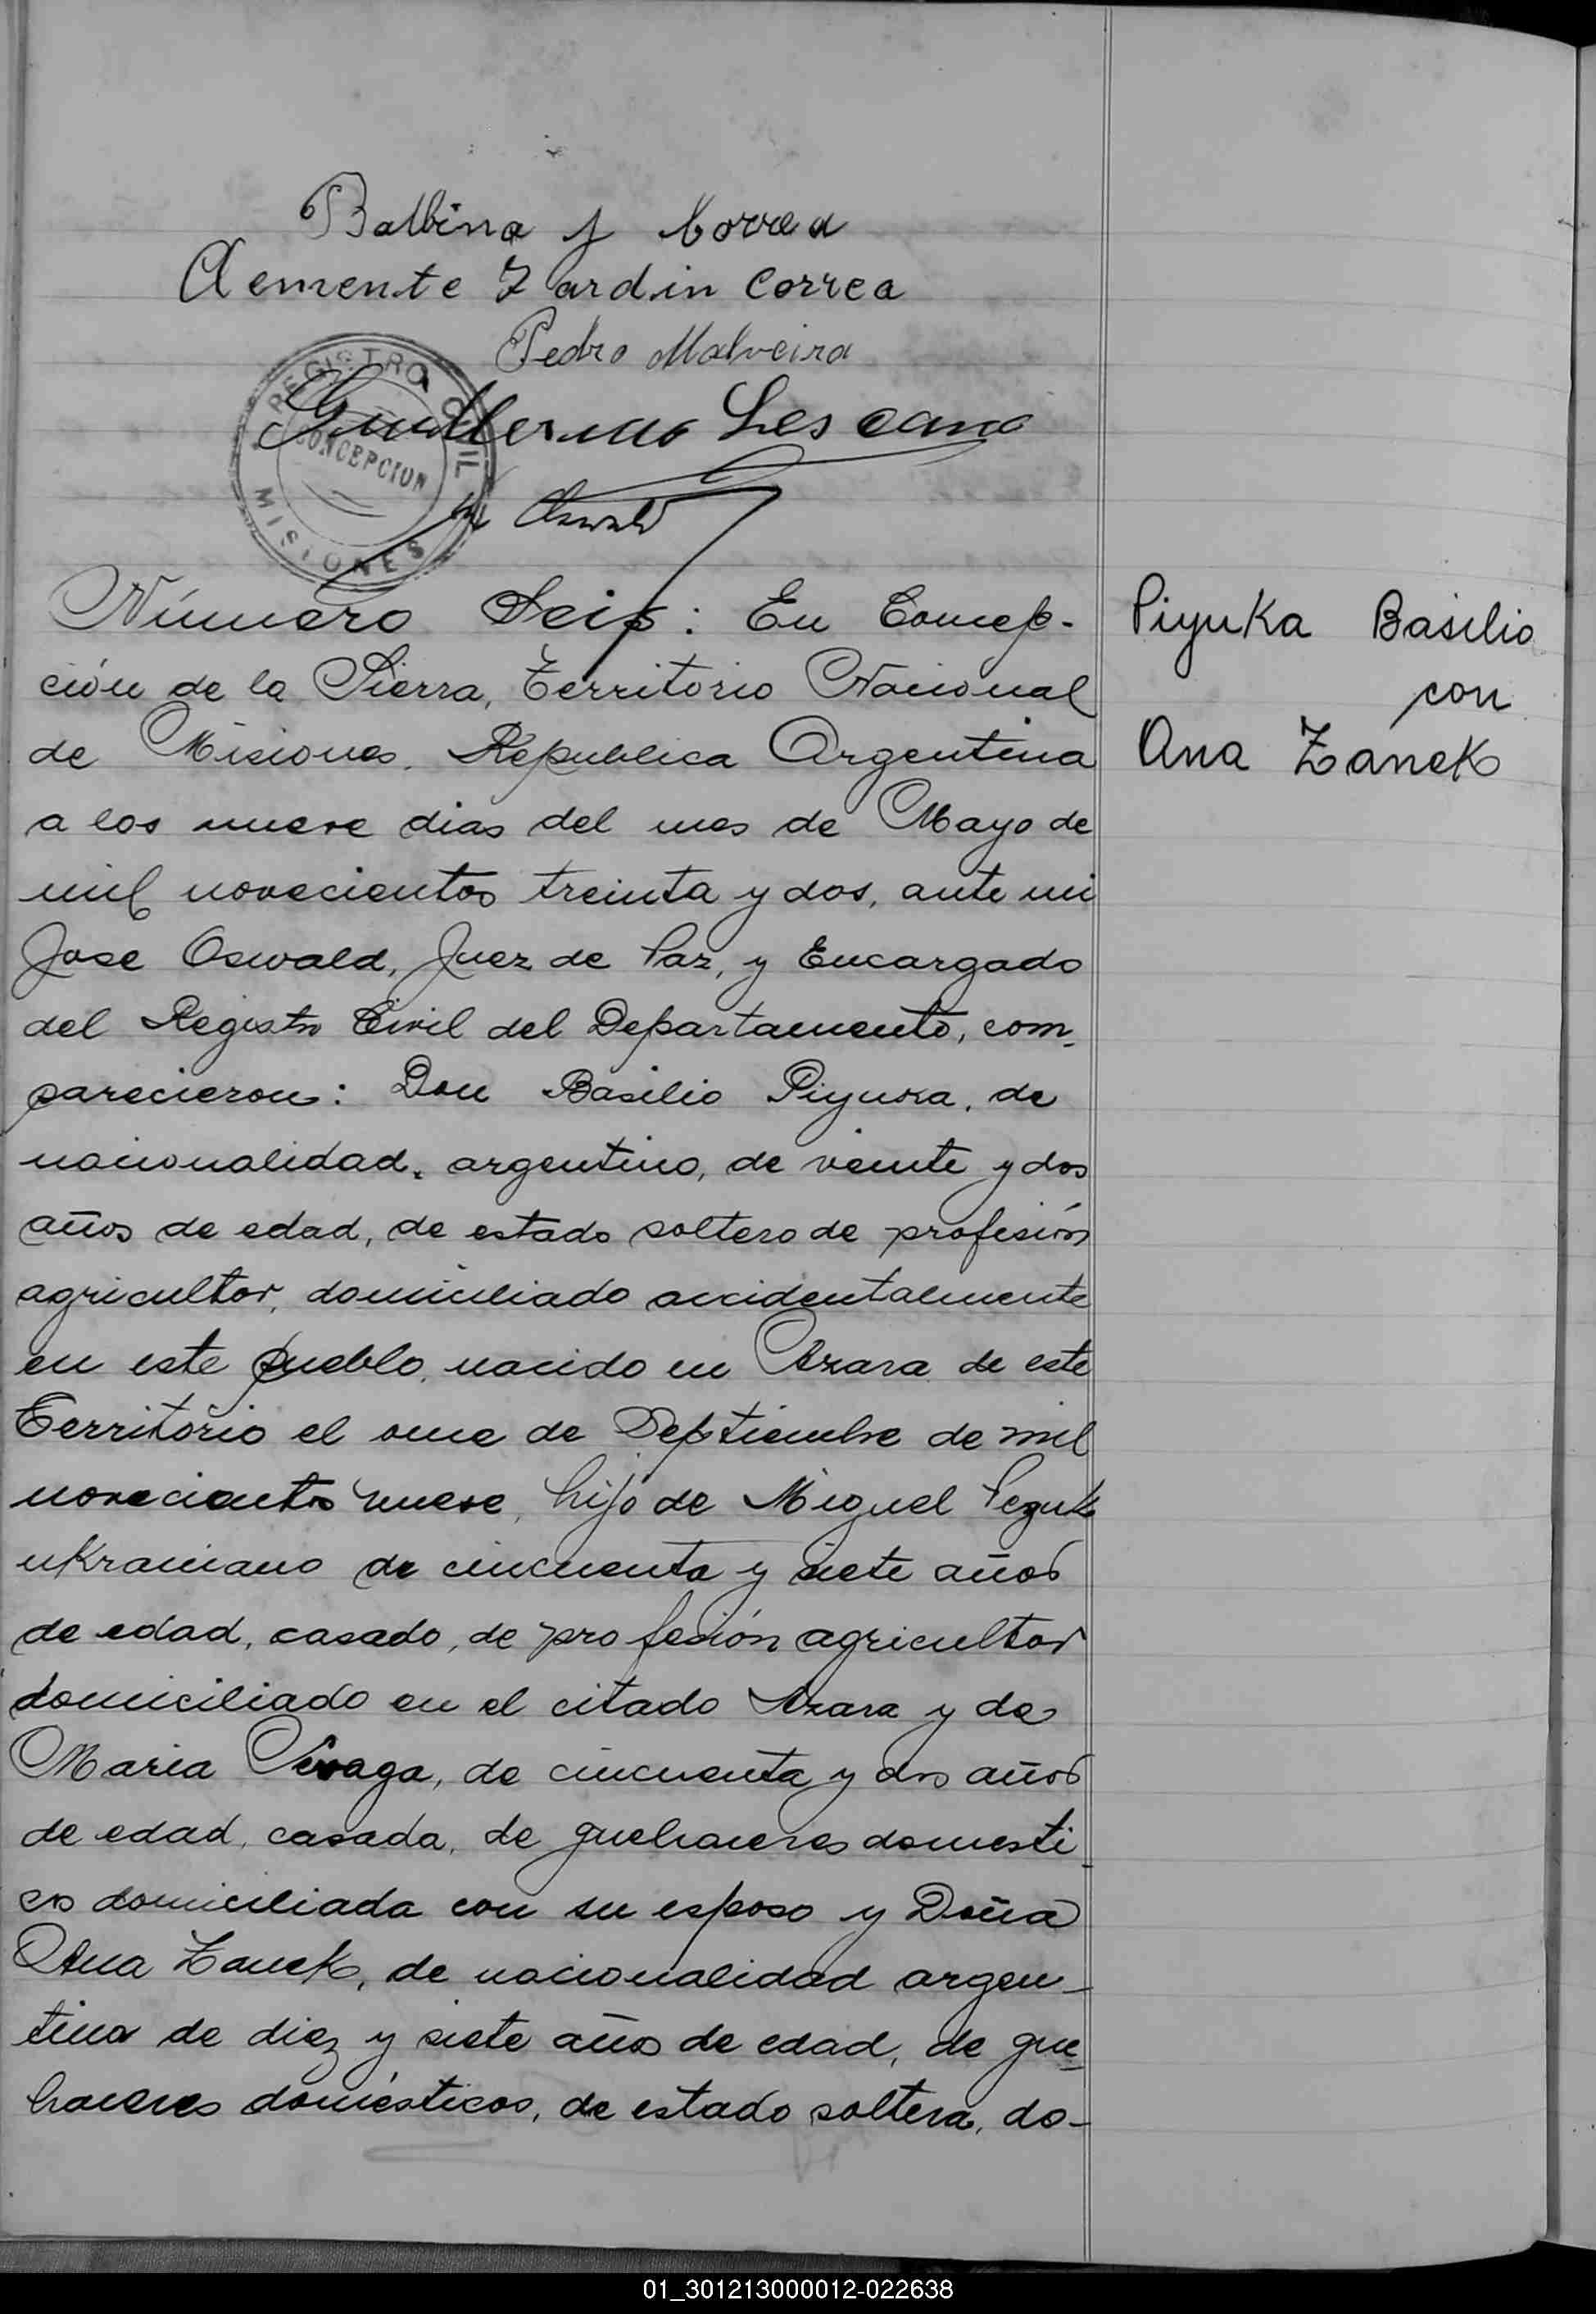 Balbina J Correa
Clemente Jardin Correa
Pedro Malveira
Guillermo Lescano
REGISTRO CIVIL
CONCEPCION
MISIONES
J Oswald
Número Seis: En Concep-
ción de la Sierra, Territorio Nacional
de Misiones. Republica Argentina
a los nueve dias del mes de Mayo de
mil novecientos treinta y dos, ante mi
Jose Oswald, Juez de Paz, y Encargado
del Registro Civil del Departamento, com-
parecieron: Don Basilio Piyuka, de
nacionalidad, argentino, de veinte y dos
años de edad, de estado soltero de profesión
agricultor, domiciliado accidentalmente
en este pueblo, nacido en Azara de este
Territorio el once de Septiembre de mil
novecientos nueve, hijo de Miguel
ukraniano de cincuenta y siete años
de edad, casado, de profesión agricultor
domiciliado en el citado Azara y de
Maria de cincuenta y dos años
de edad, casada, de quehaceres domesti-
cos domiciliada con su esposo y Doña
Ana Zanek, de nacionalidad argen-
tina de diez y siete años de edad, de que-
haceres domésticos, de estado soltera, do-
Piyuka Basilio
con
Ana Zanek
01_301213000012-022638